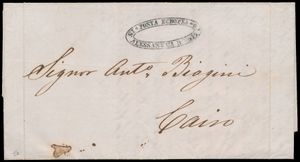 POSTA EUROPEA
ALESSANDRIA
Signor Anto. Biggini
Cairo